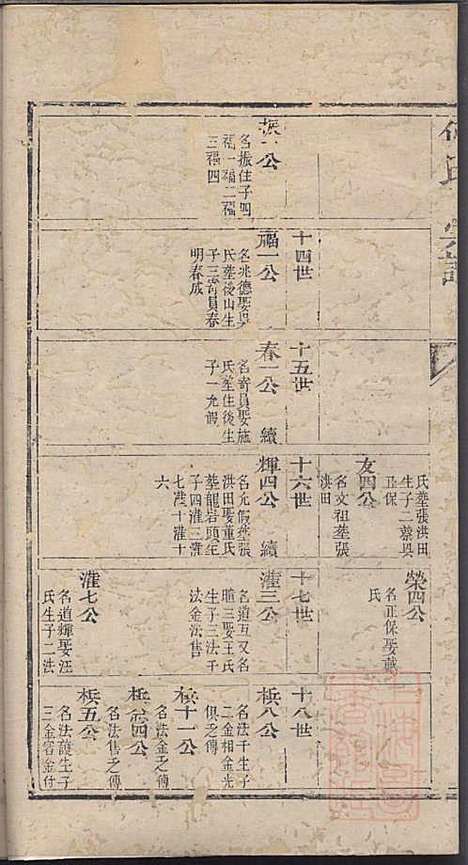 氏宗譜
振六公
名振住子四
福一福二福
三福四
十四世
福一公
名兆德娶吳
氏葬後山生
子三寄員春
明春成
十五世
春一公 續
名寄員娶施
氏葬住後生
子一允假
氏葬張洪田
生子二蔡與
正保
友四公
名文祖葬張
洪田
十六世
輝四公 續
名允假葬張
洪田娶董氏
葬龍岩頭生
子四灌三灌
七灌十灌十
六
榮四公
名正保娶戴
氏
十七世
灌三公
名道互又名
娶王氏
生子三法千
法金法售
灌七公
名道輝娶汪
氏生子二法
十八世
八公
名法千生子
二金相金光
俱乏傳
十一公
名法金乏傳
四公
名法售乏傳
五公
名法護生子
三金容金付